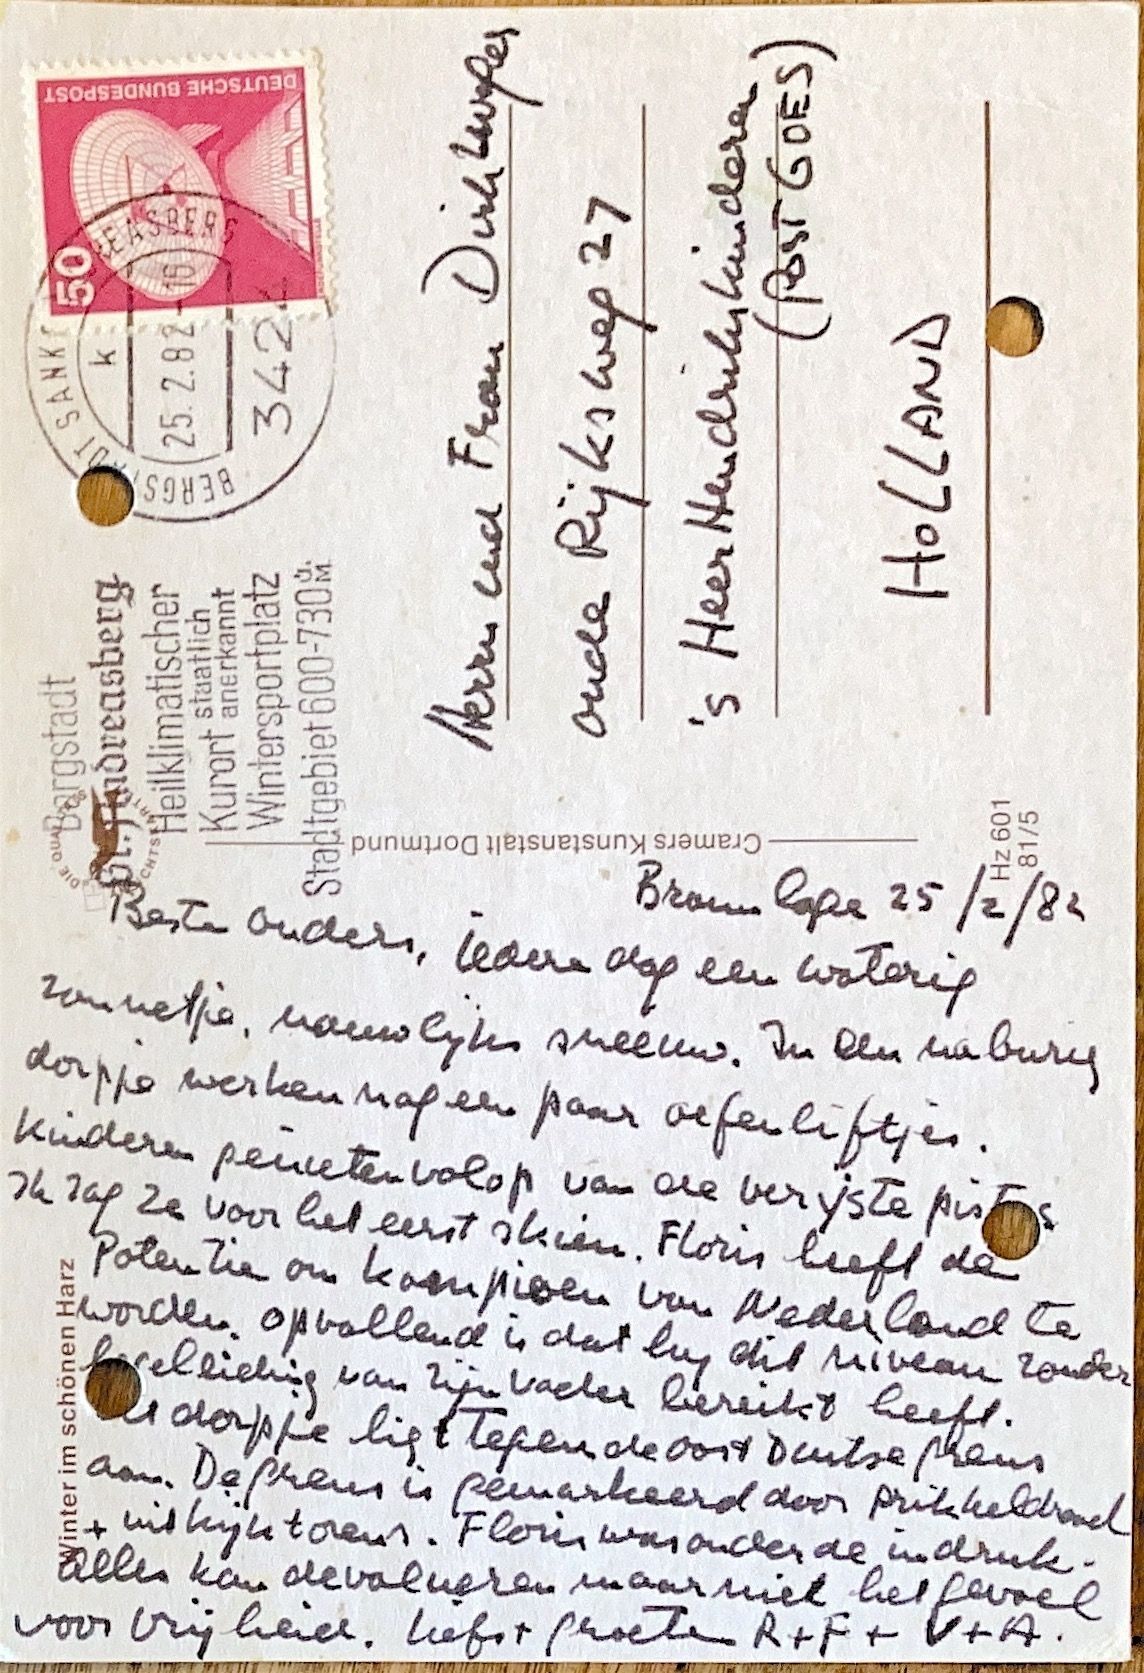 DEUTSCHE BUNDESPOST
50
BERGSTADT SANKT ANDREASBERG
k
25. 2. 82 - 16
342
Bergstadt
St. Andreasberg
Heilklimatischer
Kurort staatlich anerkannt
Wintersportplatz
Stadtgebiet 600-730 ü. M
Herrn und Frau Dirk
oude Rijksweg 27
's Heer Hendrikskinderen
(POST GOES)
HOLLAND
Cramers Kunstanstalt Dortmund
Hz 601
81/5
Winter im schönen Harz
Braunlage 25/2/82
Beste ouders, iedere dag een waterig
zonnetje, nauwelijks sneeuw. In een naburig
dorpje werken nog een paar oefenliftjes.
Kinderen genieten volop van de verijste pistes
Ik zag ze voor het eerst skien. Floris heeft de
Potentie om kampioen van Nederland te
worden. opvallend is dat hij dit niveau zonder
begeleiding van zijn vader bereikt heeft.
Het dorpje ligt tegen de oost Duitse grens
aan. De grens is gemarkeerd door prikkeldraad
+ uitkijktorens. Floris was onder de indruk.
Alles kan devalueren maar niet het gevoel
voor vrijheid. liefs + groeten R + F + V + A.